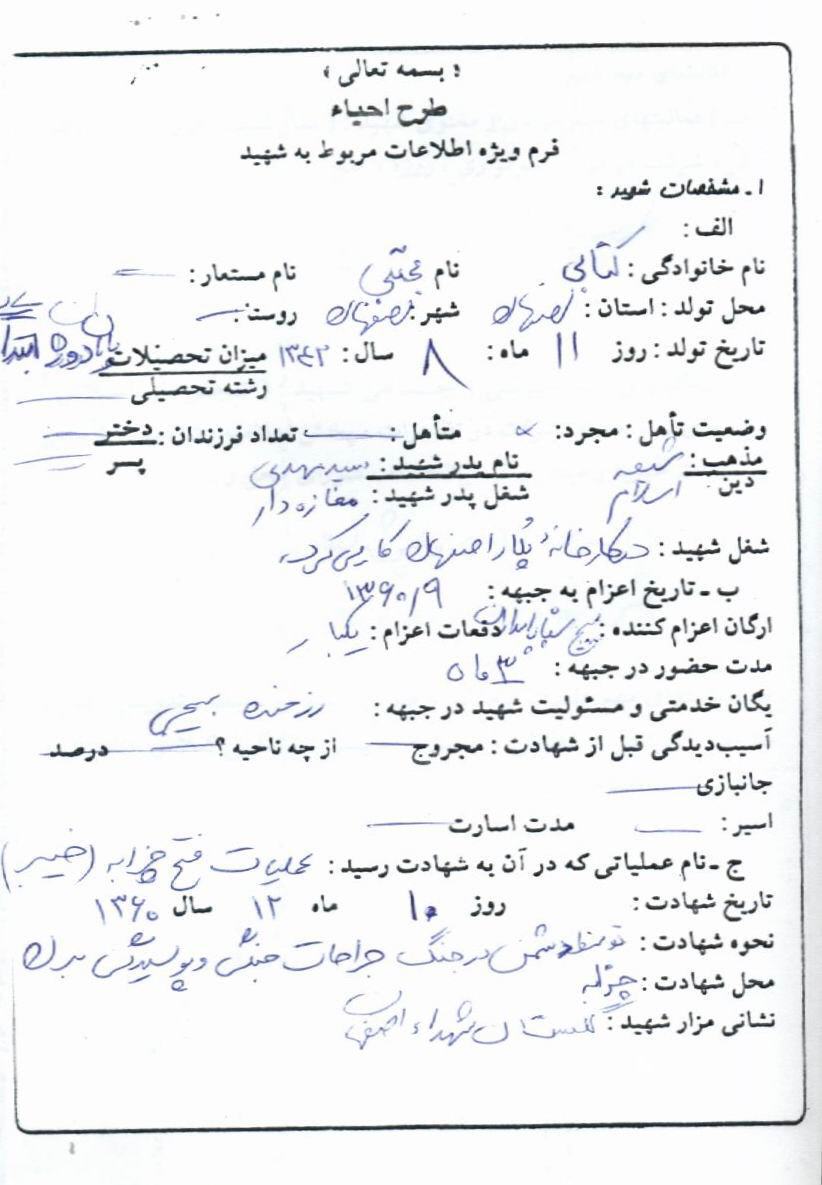 « بسمه تعالی »
طرح احیاء
فرم ویژه اطلاعات مربوط به شهید
۱ ـ مشخصات شهید :
الف :
نام خانوادگی : کتابی نام مجتبی نام مستعار :
محل تولد : استان : اصفهان شهر : اصفهان روستا :
تاریخ تولد : روز ۱۱ ماه : ۸ سال : ۱۳۴۲ میزان تحصیلات پایان دوره ابتدایی
رشته تحصیلی
وضعیت تأهل : مجرد : × متأهل : تعداد فرزندان : دختر
مذهب : شیعه نام پدر شهید : سیدمهدی پسر
دین اسلام شغل پدر شهید : مغازه دار
شغل شهید : در کارخانه اصفهان کار می کرد.
ب ـ تاریخ اعزام به جبهه : ۱۳۶۰/۹
ارگان اعزام کننده : بسیج سپاه پاسداران دفعات اعزام : یکبار
مدت حضور در جبهه : ۳ ماه
یگان خدمتی و مسئولیت شهید در جبهه : رزمنده بسیجی
آسیب‌دیدگی قبل از شهادت : مجروح از چه ناحیه ؟ درصد
جانبازی
اسیر : مدت اسارت
ج ـ نام عملیاتی که در آن به شهادت رسید : عملیات فتح چزابه
تاریخ شهادت : روز ۱۰ ماه ۱۲ سال ۱۳۶۰
نحوه شهادت : توسط دشمن در جنگ جراحات جنگی و پوسیدگی بدن
محل شهادت : چزابه
نشانی مزار شهید : گلستان شهداء اصفهان